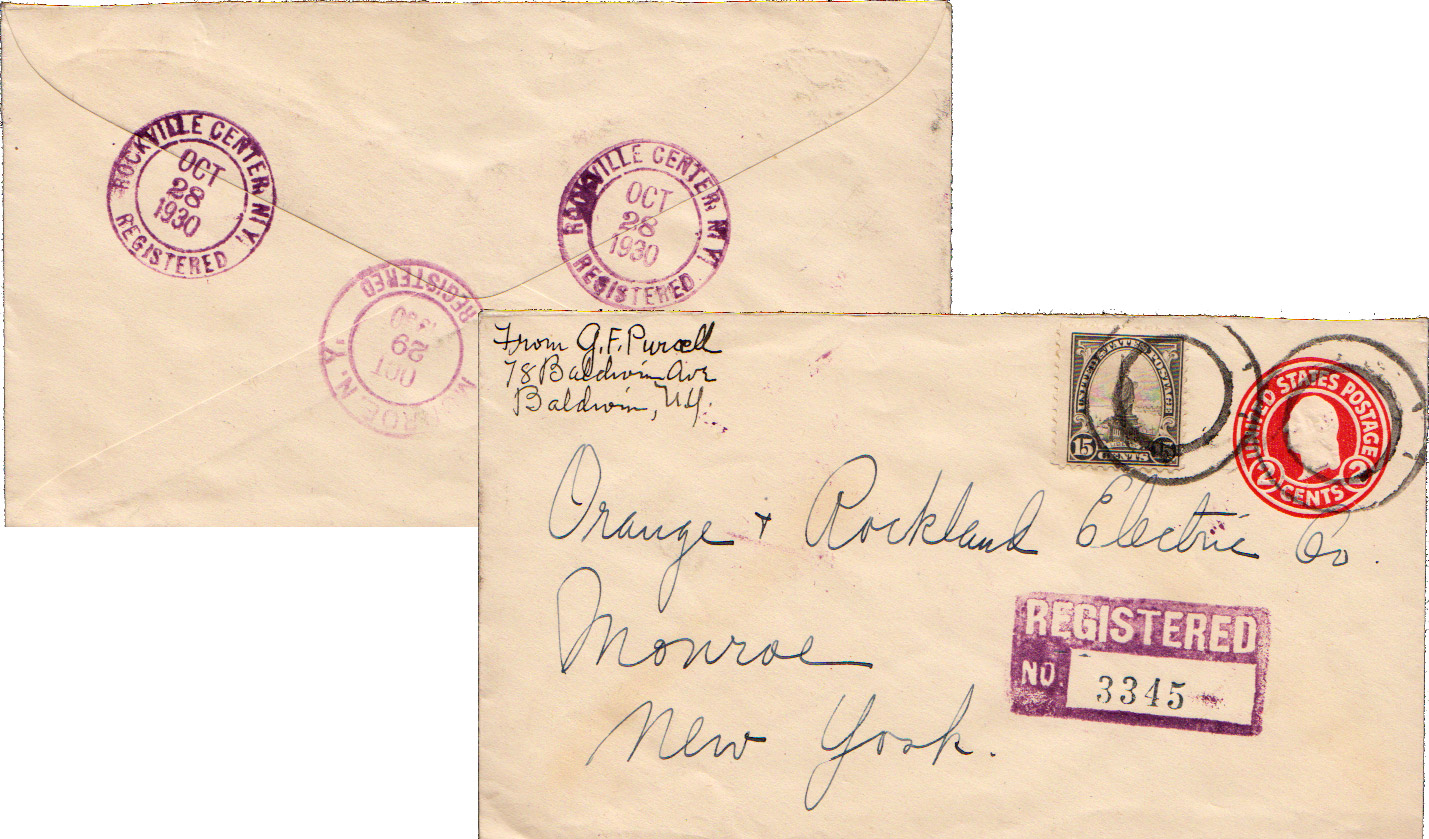 ROCKVILLE CENTER, N.Y.
OCT
28
1930
REGISTERED
ROCKVILLE CENTER, N.Y.
OCT
28
1930
REGISTERED
REGISTERED
29
OCT
N.Y.
From G.F. Purcell
78 Baldwin Ave
Baldwin, N.Y.
UNITED STATES POSTAGE
15 CENTS 15
UNITED STATES POSTAGE
2 CENTS 2
Orange + Rockland Electric Co.
Monroe
New York.
REGISTERED
NO. 3345